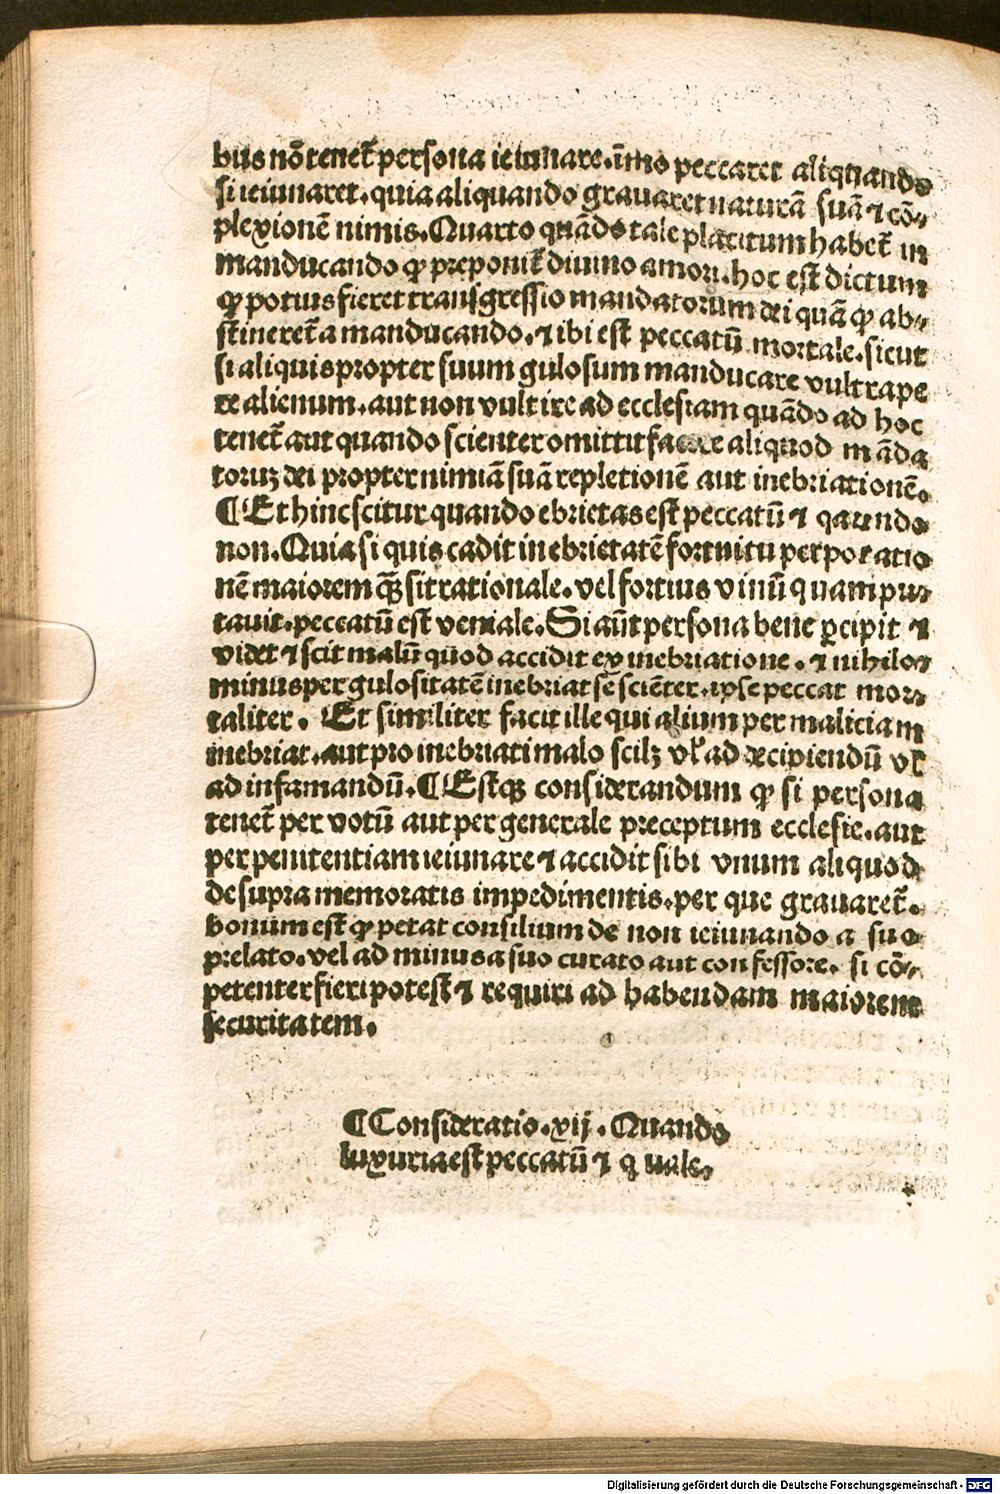 bus nō tenet̄ persona ieiunare. īmo peccaret aliquando
si ieiunaret. quia aliquando grauaret naturā suā ⁊ cō⸗
plexionē nimis. Quarto quādo tale placitum habet̄ in
manducando ꝙ preponit̄ diuino amori. hoc est dictum
ꝙ potius fieret transgressio mandatorum dei quā ꝙ ab⸗
stineret̄ a manducando. ⁊ ibi est peccatū mortale. sicut
si aliquis propter suum gulosum manducare vult rape
re alienum. aut non vult ire ad ecclesiam quādo ad hoc
tenet̄ aut quando scienter omittit facere aliquod māda
toruꝫ dei propter nimiā suā repletionē aut inebriationē.
¶ Et hinc scitur quando ebrietas est peccatū ⁊ quando
non. Quia si quis cadit in ebrietatē fortuitu per potatio
nē maiorem ꝙ̄ sit rationale. vel fortius vinū quam pu⸗
tauit. peccatū est veniale. Si aūt persona bene ꝑcipit ⁊
videt ⁊ scit malū quod accidit ex inebriatione. ⁊ nihilo⸗
minus per gulositatē inebriat se sciēter. ipse peccat mor⸗
taliter. Et similiter facit ille qui alium per maliciam
inebriat. aut pro inebriati malo scilꝫ vl̓ ad decipiendū vl̓
ad infamandū. ¶ Estqꝫ considerandum ꝙ si persona
tenet̄ per votū aut per generale preceptum ecclesie. aut
per penitentiam ieiunare ⁊ accidit sibi vnum aliquod
de supra memoratis impedimentis. per que grauaret̄.
bonum est ꝙ petat consilium de non ieiunando a suo
prelato. vel ad minus a suo curato aut confessore. si cō⸗
petenter fieri potest ⁊ requiri ad habendam maiorem
securitatem.
¶ Consideratio. xij. Quando
luxuria est peccatū ⁊ quale.
Digitalisierung gefördert durch die Deutsche Forschungsgemeinschaft - DFG